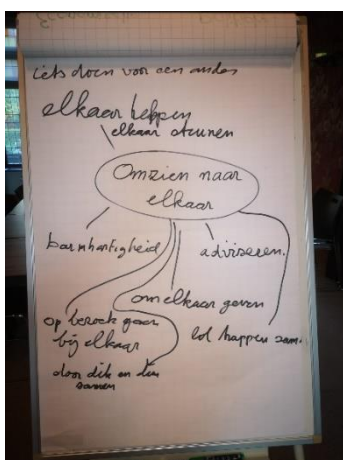 iets doen voor een ander
elkaar helpen
elkaar steunen
Omzien naar
elkaar
barmhartigheid
adviseren.
om elkaar geven
op bezoek gaan
bij elkaar
lol happen sam.
door dik en dun
samen